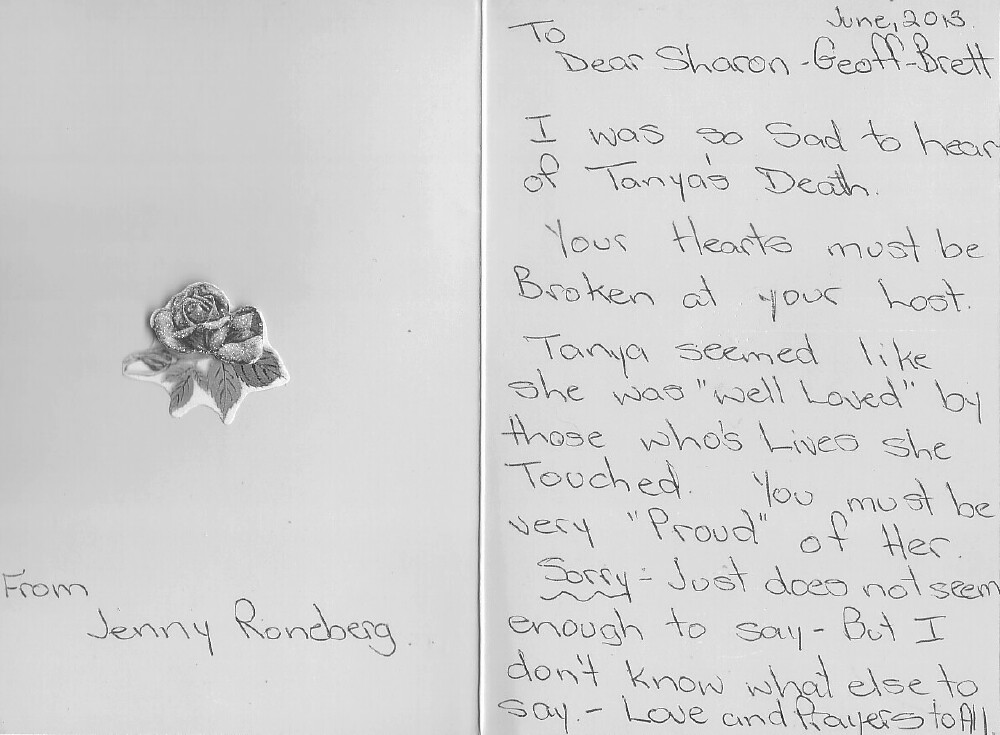 From
Jenny Roneberg.
June, 2013.
To
Dear Sharon - Geoff - Brett
I was so Sad to hear
of Tanya's Death.
Your Hearts must be
Broken at your Lost.
Tanya seemed like
she was "well Loved" by
those who's Lives she
Touched. You must be
very "Proud" of Her.
Sorry - Just does not seem
enough to say - But I
don't know what else to
say. - Love and Prayers to All.